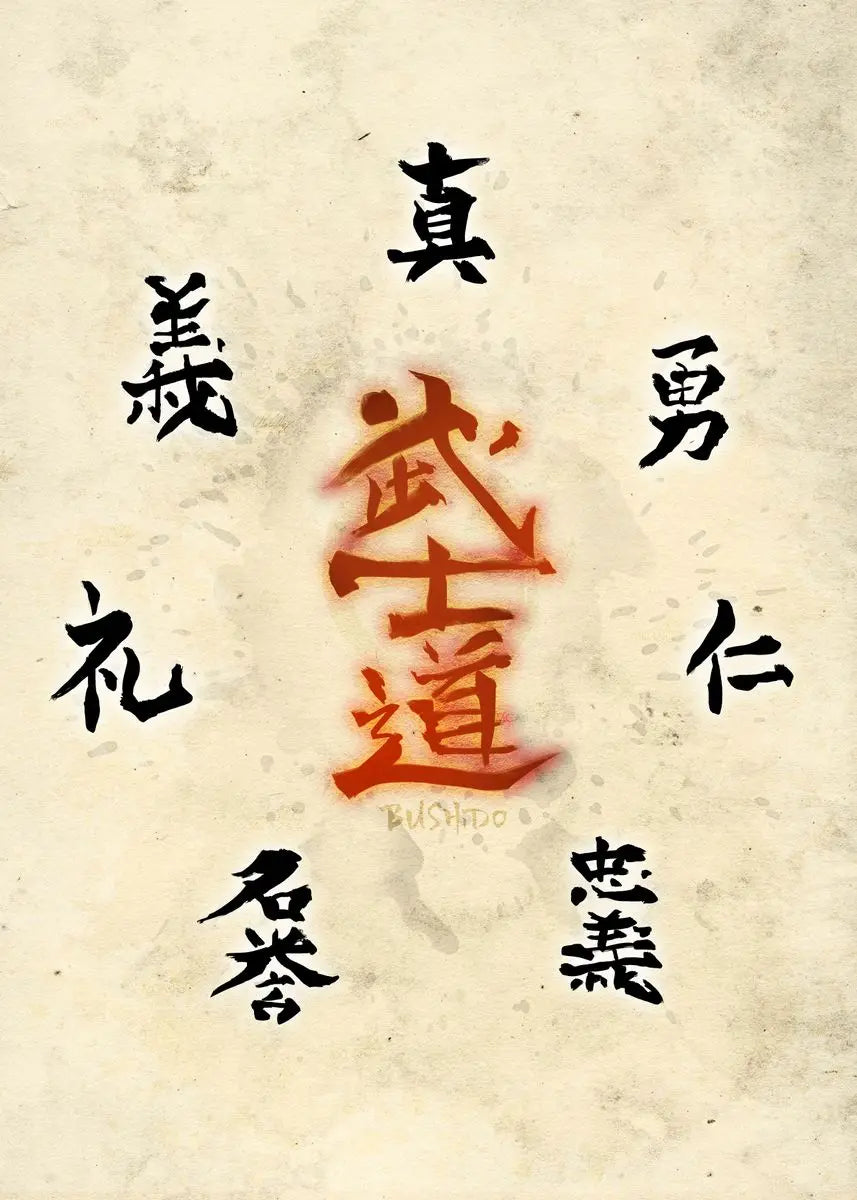 真
義
勇
武士道
礼
仁
BUSHIDO
名誉
忠義